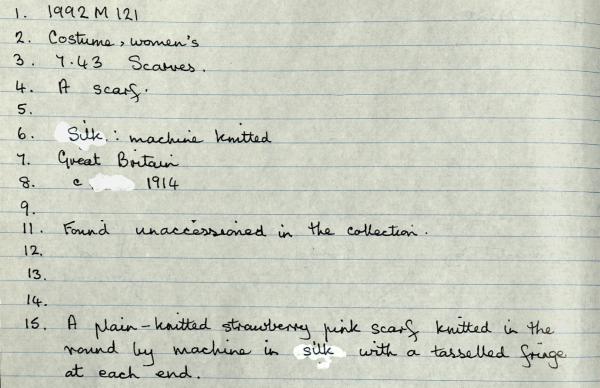 1. 1992 M 121
2. Costume, women's
3. 7.43 Scarves.
4. A scarf.
5.
6. Silk : machine knitted
7. Great Britain
8. c 1914
9.
11. Found unaccessioned in the collection.
12.
13.
14.
15. A plain-knitted strawberry pink scarf knitted in the
round by machine in silk with a tasselled fringe
at each end.